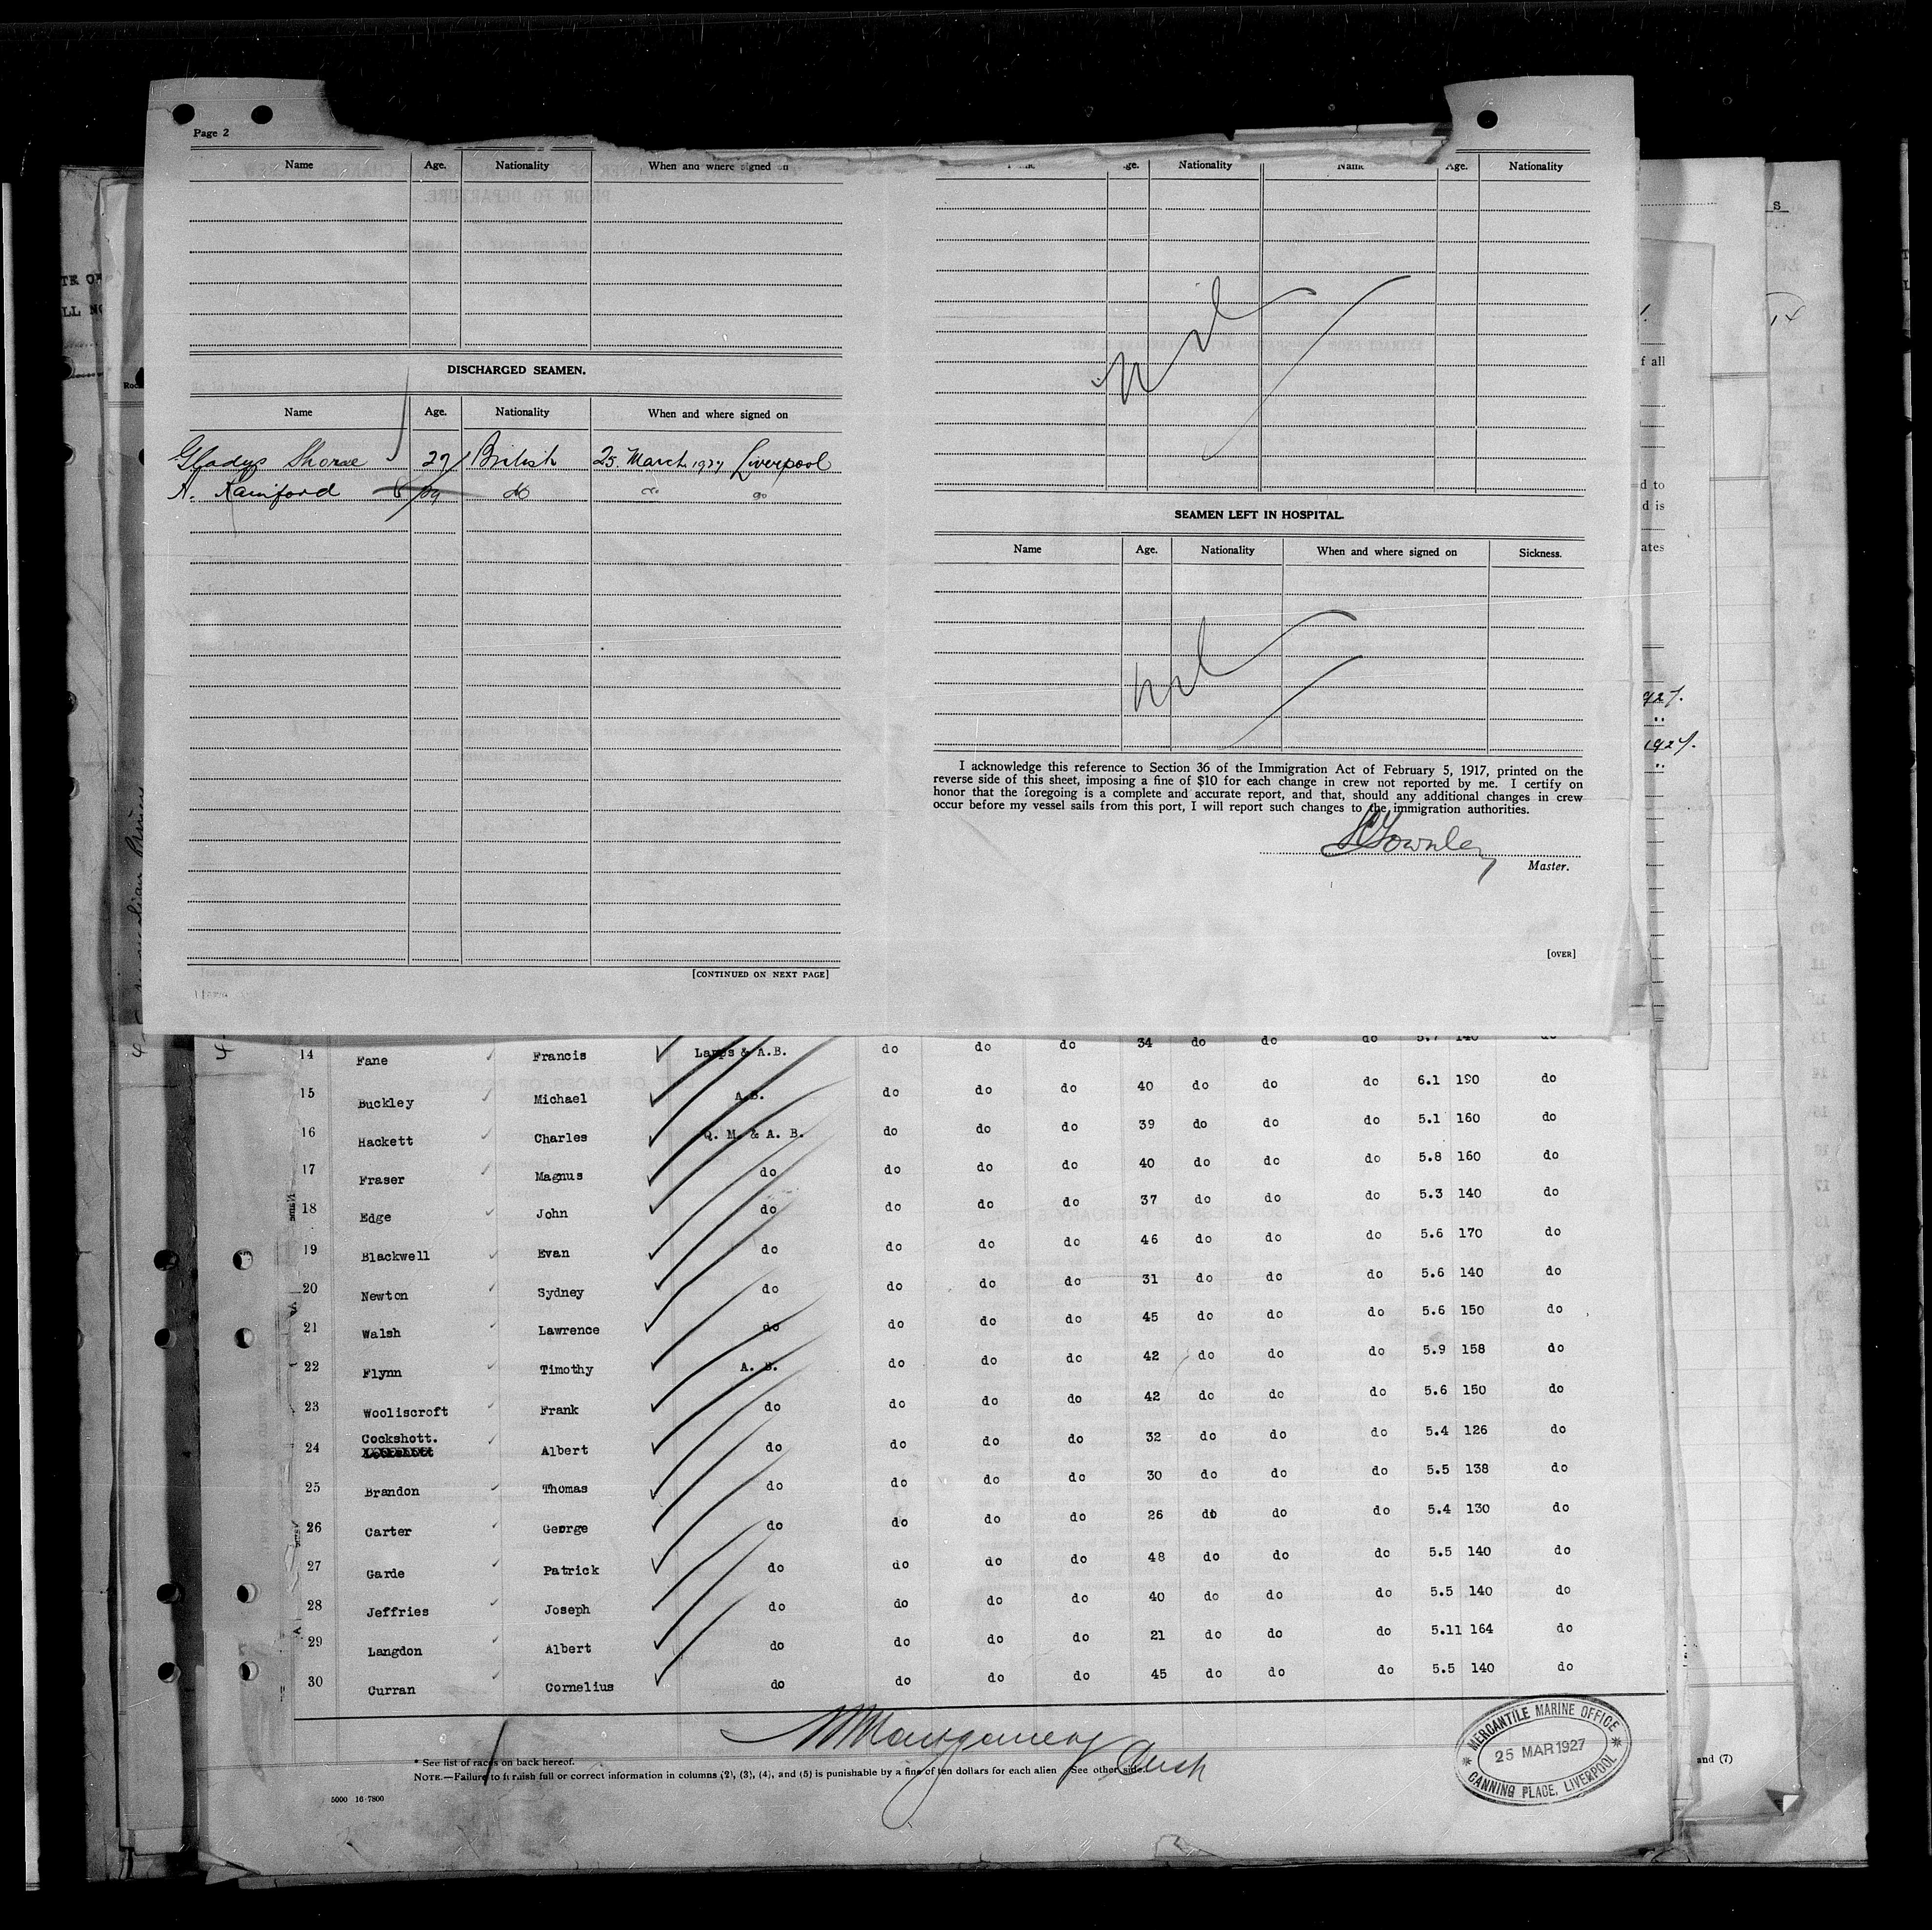 Page 2
Name Age. Nationality When and where signed on
DISCHARGED SEAMEN.
Name Age. Nationality When and where signed on
Gladys 27 British 25 March 1927 Liverpool
A. Rainford 39 do do do
[CONTINUED ON NEXT PAGE]
Nationality Name Age. Nationality
nil
SEAMEN LEFT IN HOSPITAL.
Name Age. Nationality When and where signed on Sickness.
nil
I acknowledge this reference to Section 36 of the Immigration Act of February 5, 1917, printed on the
reverse side of this sheet, imposing a fine of $10 for each change in crew not reported by me. I certify on
honor that the foregoing is a complete and accurate report, and that, should any additional changes in crew
occur before my vessel sails from this port, I will report such changes to the immigration authorities.
Townley
Master.
[OVER]
14 Fane Francis Lamps & A.B. do do do 34 do do do 5.7 140 do
15 Buckley Michael A.B. do do do 40 do do do 6.1 190 do
16 Hackett Charles Q. M. & A. B. do do do 39 do do do 5.1 160 do
17 Fraser Magnus do do do do 40 do do do 5.8 160 do
18 Edge John do do do do 37 do do do 5.3 140 do
19 Blackwell Evan do do do do 46 do do do 5.6 170 do
20 Newton Sydney do do do do 31 do do do 5.6 140 do
21 Walsh Lawrence do do do do 45 do do do 5.6 150 do
22 Flynn Timothy A. B. do do do 42 do do do 5.9 158 do
23 Wooliscroft Frank do do do do 42 do do do 5.6 150 do
24 Cockshott. Albert do do do do 32 do do do 5.4 126 do
25 Brandon Thomas do do do do 30 do do do 5.5 138 do
26 Carter George do do do do 26 do do do 5.4 130 do
27 Garde Patrick do do do do 48 do do do 5.5 140 do
28 Jeffries Joseph do do do do 40 do do do 5.5 140 do
29 Langdon Albert do do do do 21 do do do 5.11 164 do
30 Curran Cornelius do do do do 45 do do do 5.5 140 do
Montgomery
* See list of races on back hereof.
NOTE.—Failure to furnish full or correct information in columns (2), (3), (4), and (5) is punishable by a fine of ten dollars for each alien See other side.
5000 16-7800
MERCANTILE MARINE OFFICE
25 MAR 1927
CANNING PLACE, LIVERPOOL
and (7)